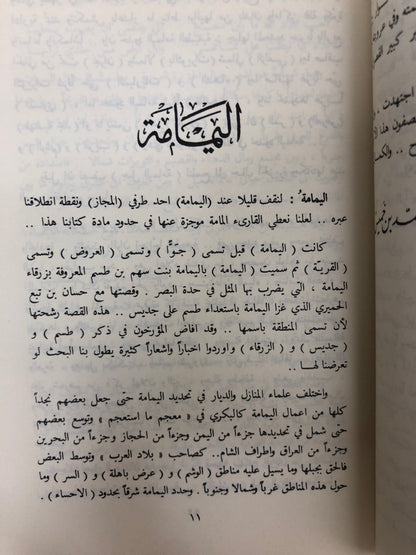 اليمامة
اليمامة : لنقف قليلا عند (اليمامة) احد طرفي (المجاز) ونقطة انطلاقنا
عبره .. لعلنا نعطي القارىء المامة موجزة عنها في حدود مادة كتابنا هذا ..
كانت ( اليمامة ) قبل تسمى ( جَوًّا ) وتسمى ( العروض ) وتسمى
( القريّة ) ثم سميت ( اليمامة ) باليمامة بنت سهم بن طسم المعروفة بزرقاء
اليمامة ، التي يضرب بها المثل في حدة البصر . وقصتها مع حسان بن تبع
الحميري الذي غزا اليمامة باستعداء طسم على جديس .. هذه القصة رشحتها
لأن تسمى المنطقة باسمها .. وقد افاض المؤرخون في ذكر ( طسم ) و
( جديس ) و ( الزرقاء ) واوردوا اخباراً واشعاراً كثيرة يطول بنا البحث لو
تعرضنا لها ..
واختلف علماء المنازل والديار في تحديد اليمامة حتى جعل بعضهم نجداً
كلها من اعمال اليمامة كالبكري في « معجم ما استعجم » وتوسع بعضهم
حتى شمل في تحديدها جزءاً من اليمن وجزءاً من الحجاز وجزءاً من البحرين
وجزءاً من العراق واطراف الشام.. كصاحب « بلاد العرب » وتوسط البعض
فالحق بجبلها وما يسيل عليه مناطق ( الوشم ) و ( عرض باهلة ) و ( السر ) وما
حول هذه المناطق غرباً وشمالا وجنوباً . وحدد اليمامة شرقاً بحدود ( الاحساء ) .
١١
اجتهدت